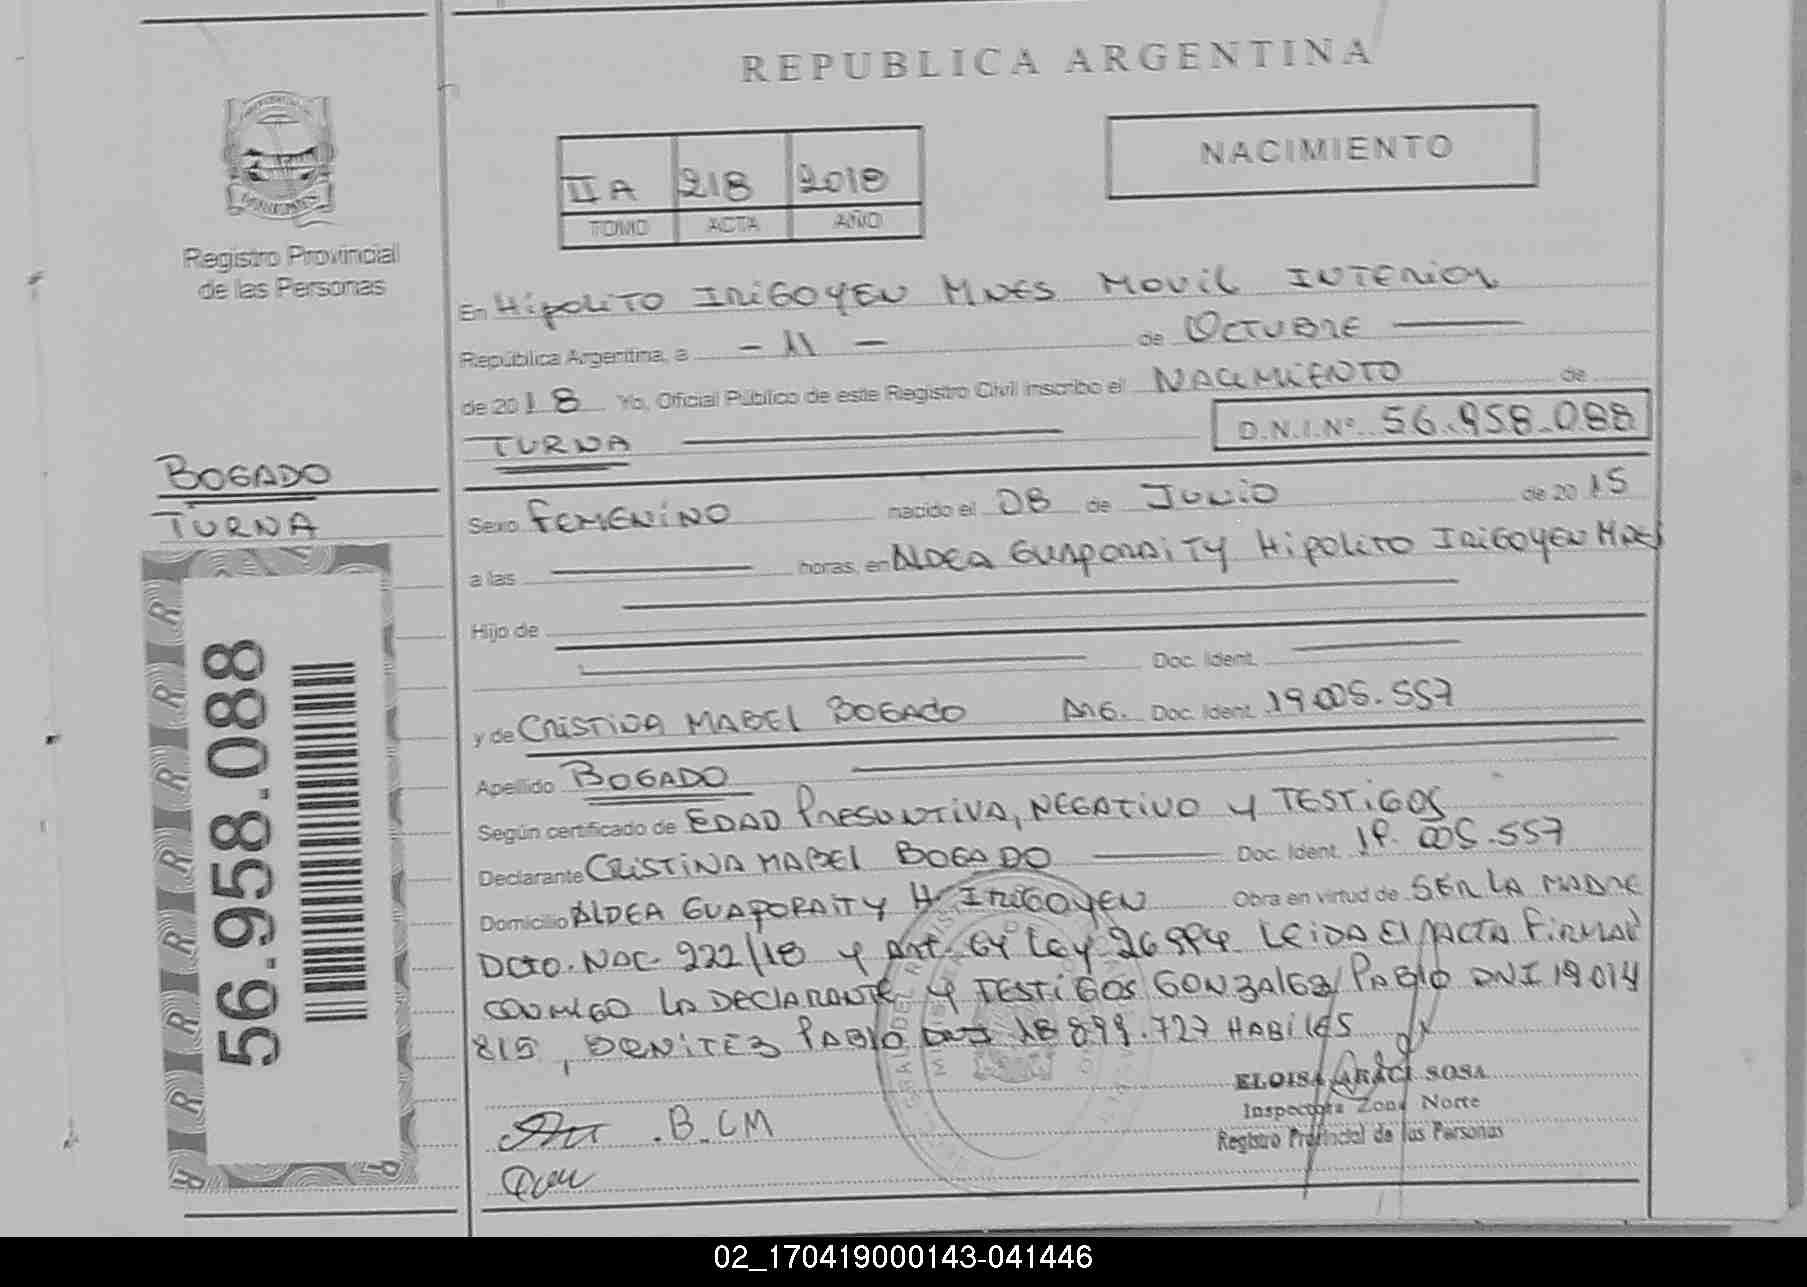 REPUBLICA ARGENTINA
NACIMIENTO
IIA 218 2018
TOMO ACTA AÑO
Registro Provincial
de las Personas
En Hipolito Irigoyen Mnes Movil Interior
República Argentina, a - 11 - de Octubre
de 2018 Yo, Oficial Público de este Registro Civil inscribo el Nacimiento de
Turna D.N.I.Nº 56.958.088
BOGADO
TURNA
Sexo Femenino nacido el 08 de Junio de 2015
a las horas, en Aldea Guaporaity Hipolito Irigoyen Mnes
Hijo de
Doc. Ident.
y de Cristina Mabel Bogado Arg. Doc. Ident. 19.005.557
Apellido Bogado
Según certificado de Edad Presuntiva, Negativo y Testigos
Declarante Cristina Mabel Bogado Doc. Ident. 19.005.557
Domicilio Aldea Guaporaity H. Irigoyen Obra en virtud de Ser la Madre
Dcto. Nac. 222/18 y Art. 64 Ley 26994 Leida el acta Firman
conmigo la declarante y Testigos Gonzalez Pablo DNI 19014
815, Benitez Pablo DNI 18899.727 Habiles
ELOISA ARACI SOSA
Inspectora Zona Norte
Registro Provincial de las Personas
.B.CM
56.958.088
02_170419000143-041446